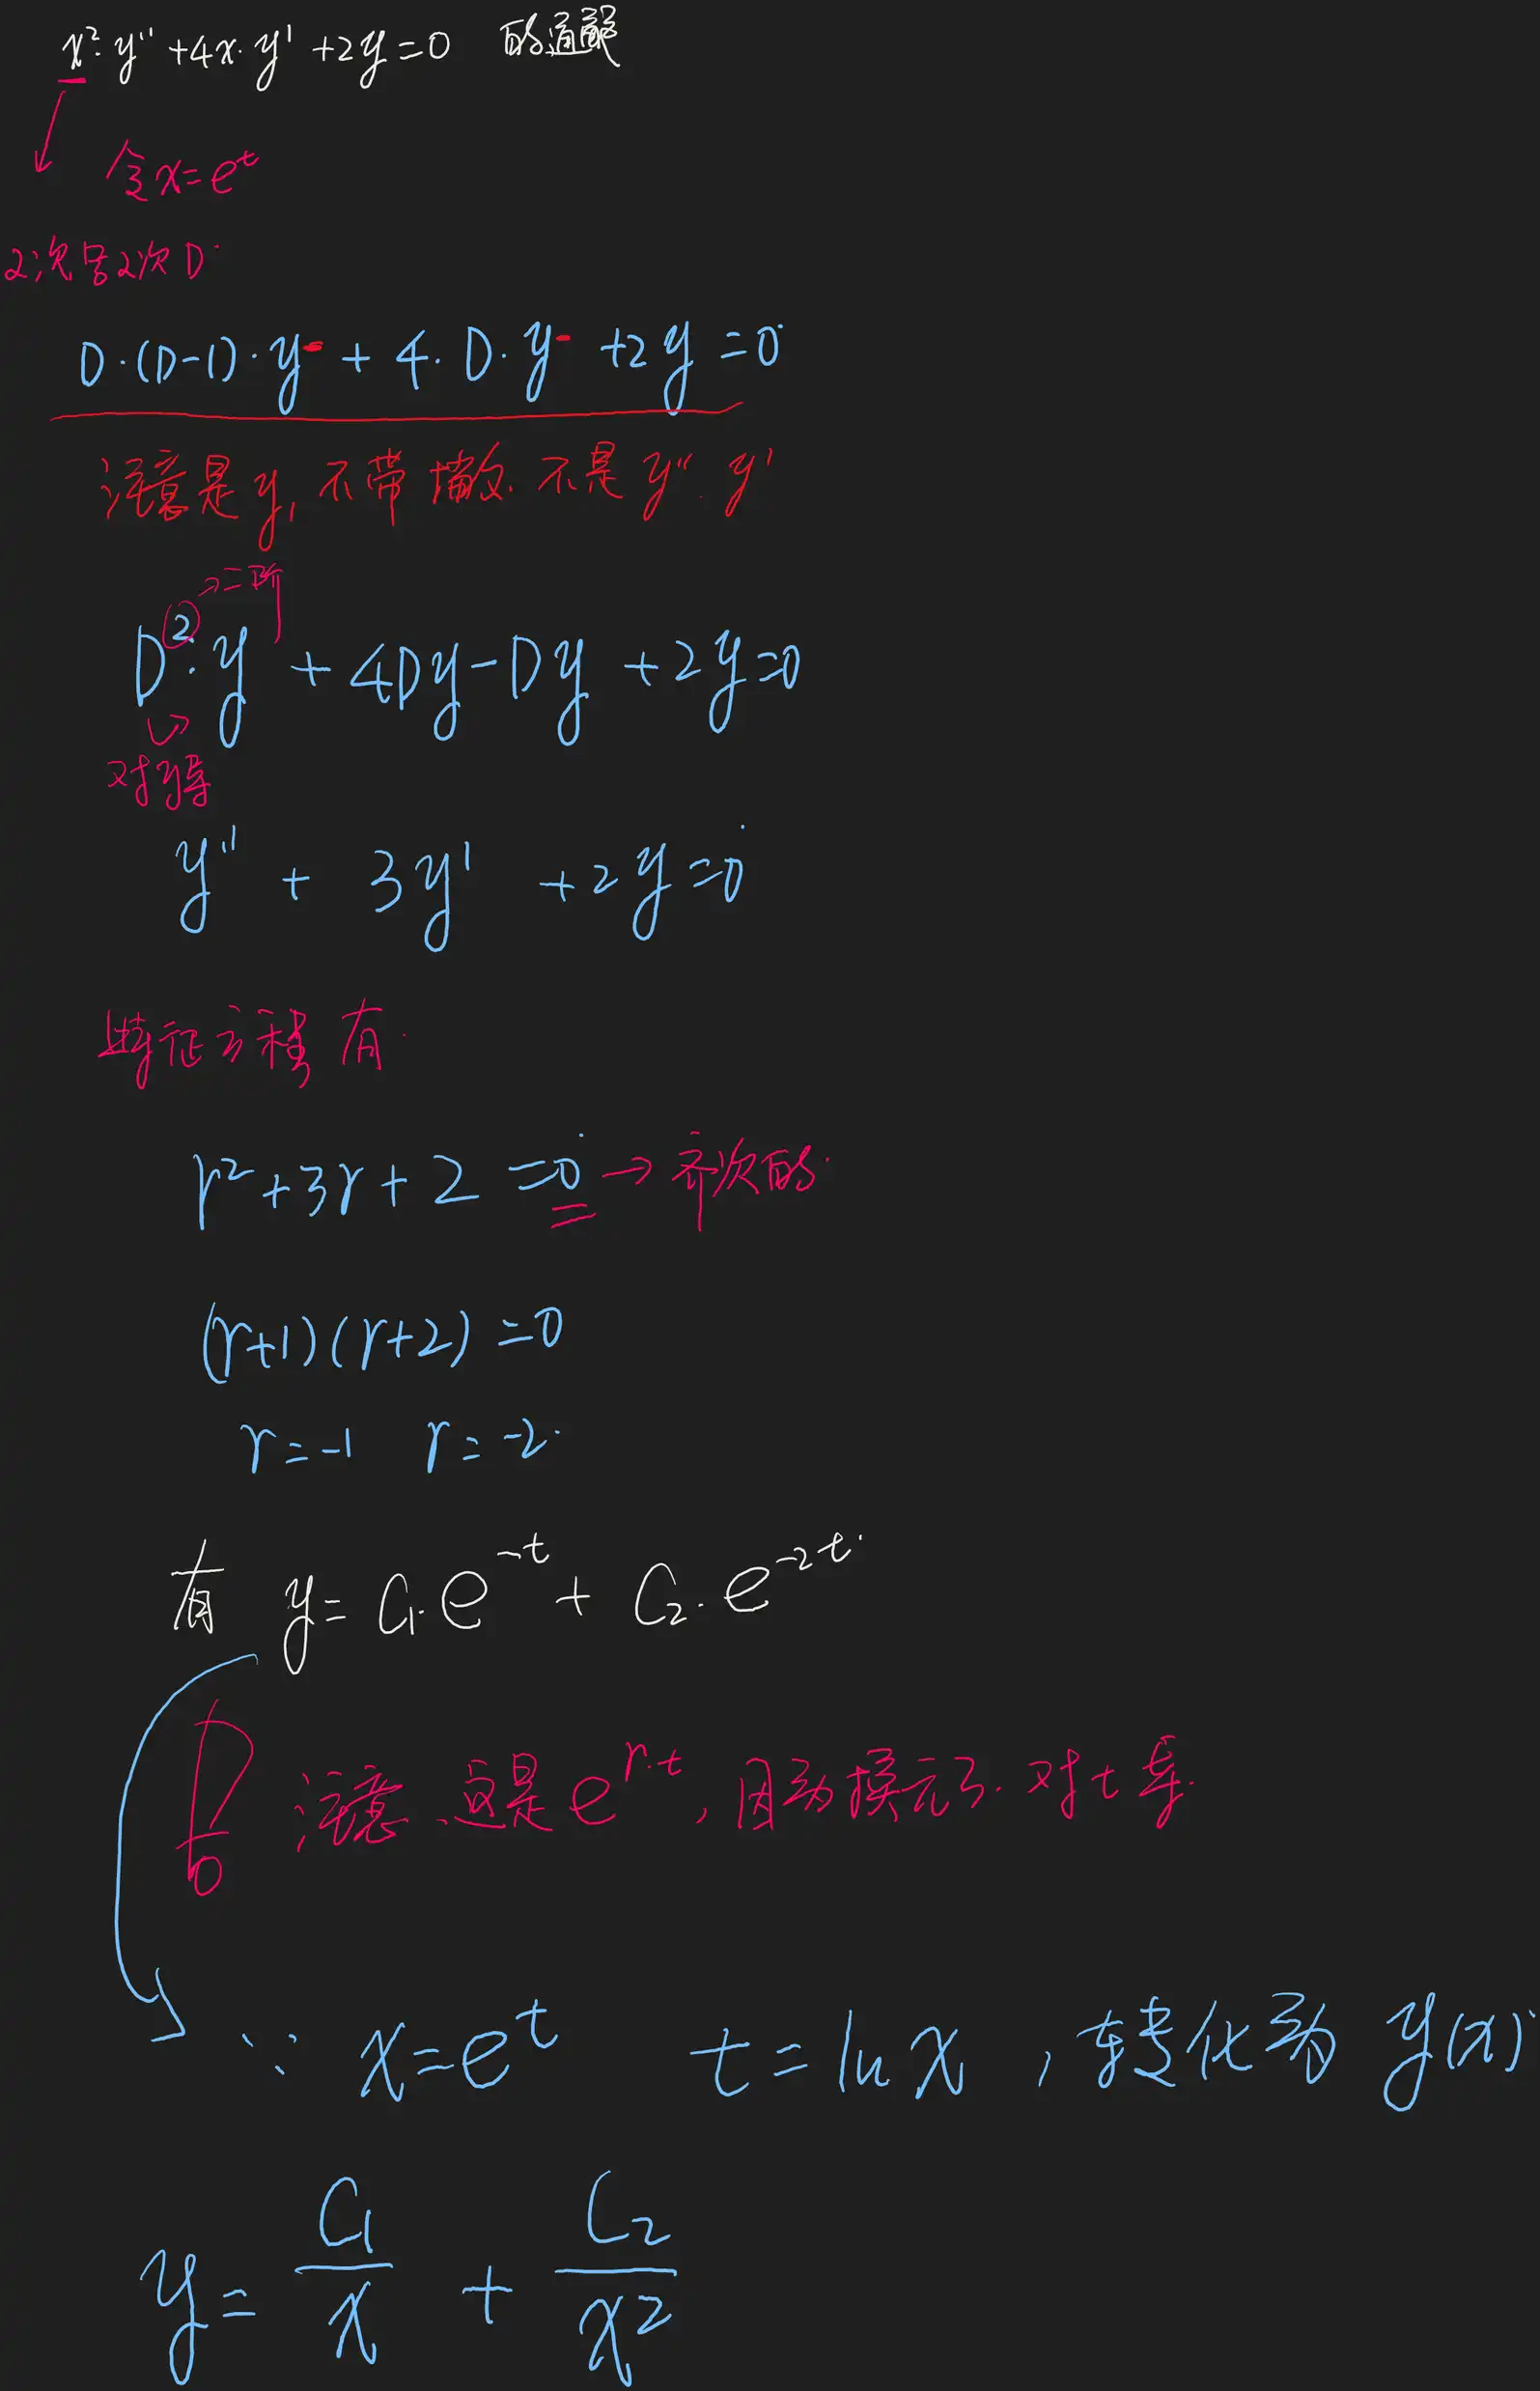 x²·y''+4x·y'+2y=0 的通解
令x=e^t
2次写2次D
D·(D-1)·y+4·D·y+2y=0
注意是y,不带撇的.不是y''.y'
→二阶
D²·y+4Dy-Dy+2y=0
对y导
y''+3y'+2y=0
特征方程有
r²+3r+2=0→齐次的
(r+1)(r+2)=0
r=-1 r=-2
有 y=C₁·e^{-t}+C₂·e^{-2t}
注意,这是e^{r·t},因为换元了.对t导
∵ x=e^t t=ln x,转化为y(x)
y=C₁/x+C₂/x²